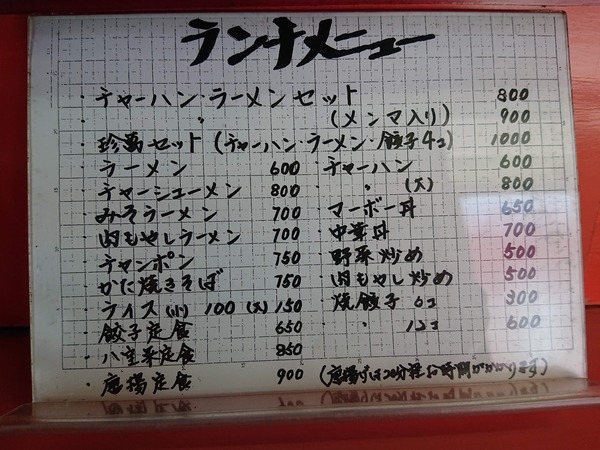 ランチメニュー
・チャーハン・ラーメンセット 800
・ 〃 (メンマ入り) 900
・珍萬セット(チャーハン・ラーメン・餃子4コ) 1000
・ラーメン 600 ・チャーハン 600
・チャーシューメン 800 ・ 〃 (大) 800
・みそラーメン 700 ・マーボー丼 650
・肉もやしラーメン 700 ・中華丼 700
・チャンポン 750 ・野菜炒め 500
・かに焼きそば 750 ・肉もやし炒め 500
・ライス(小) 100 (大) 150 ・焼餃子 6コ 300
・餃子定食 650 ・ 〃 12コ 600
・八宝菜定食 850
・唐揚定食 900 (唐揚げは20分程お時間がかかります)